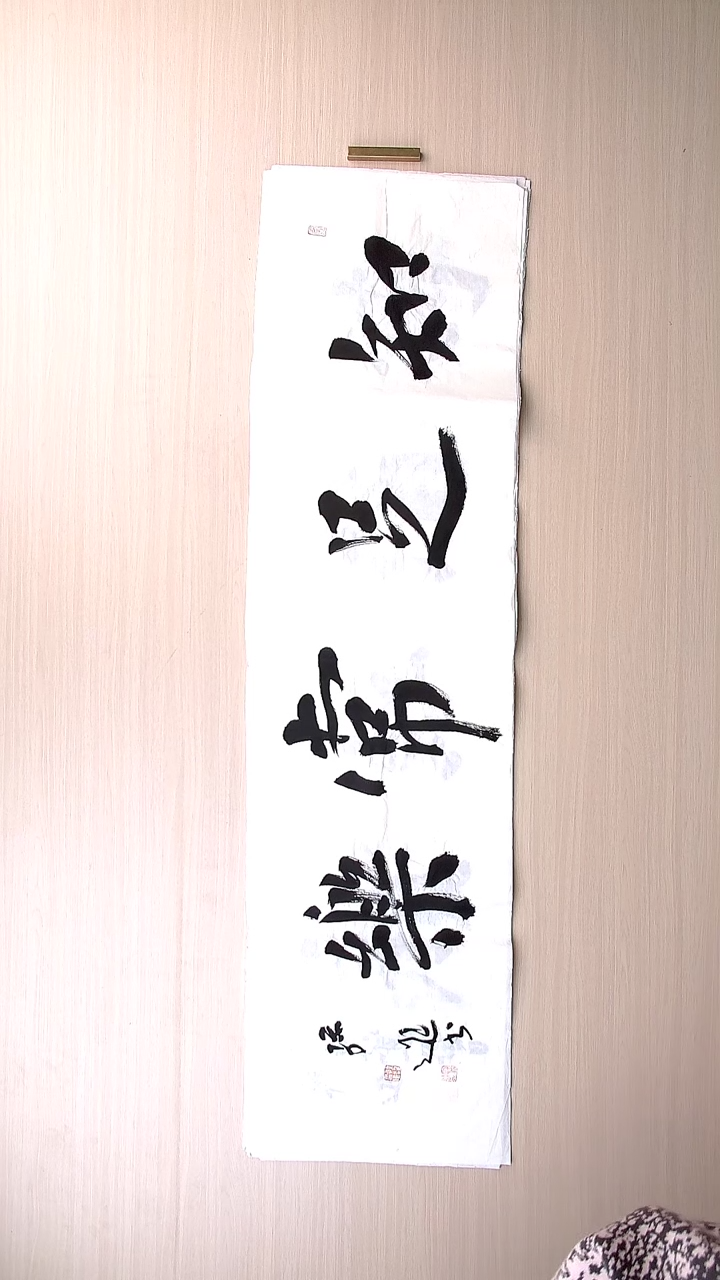 知足常樂
書